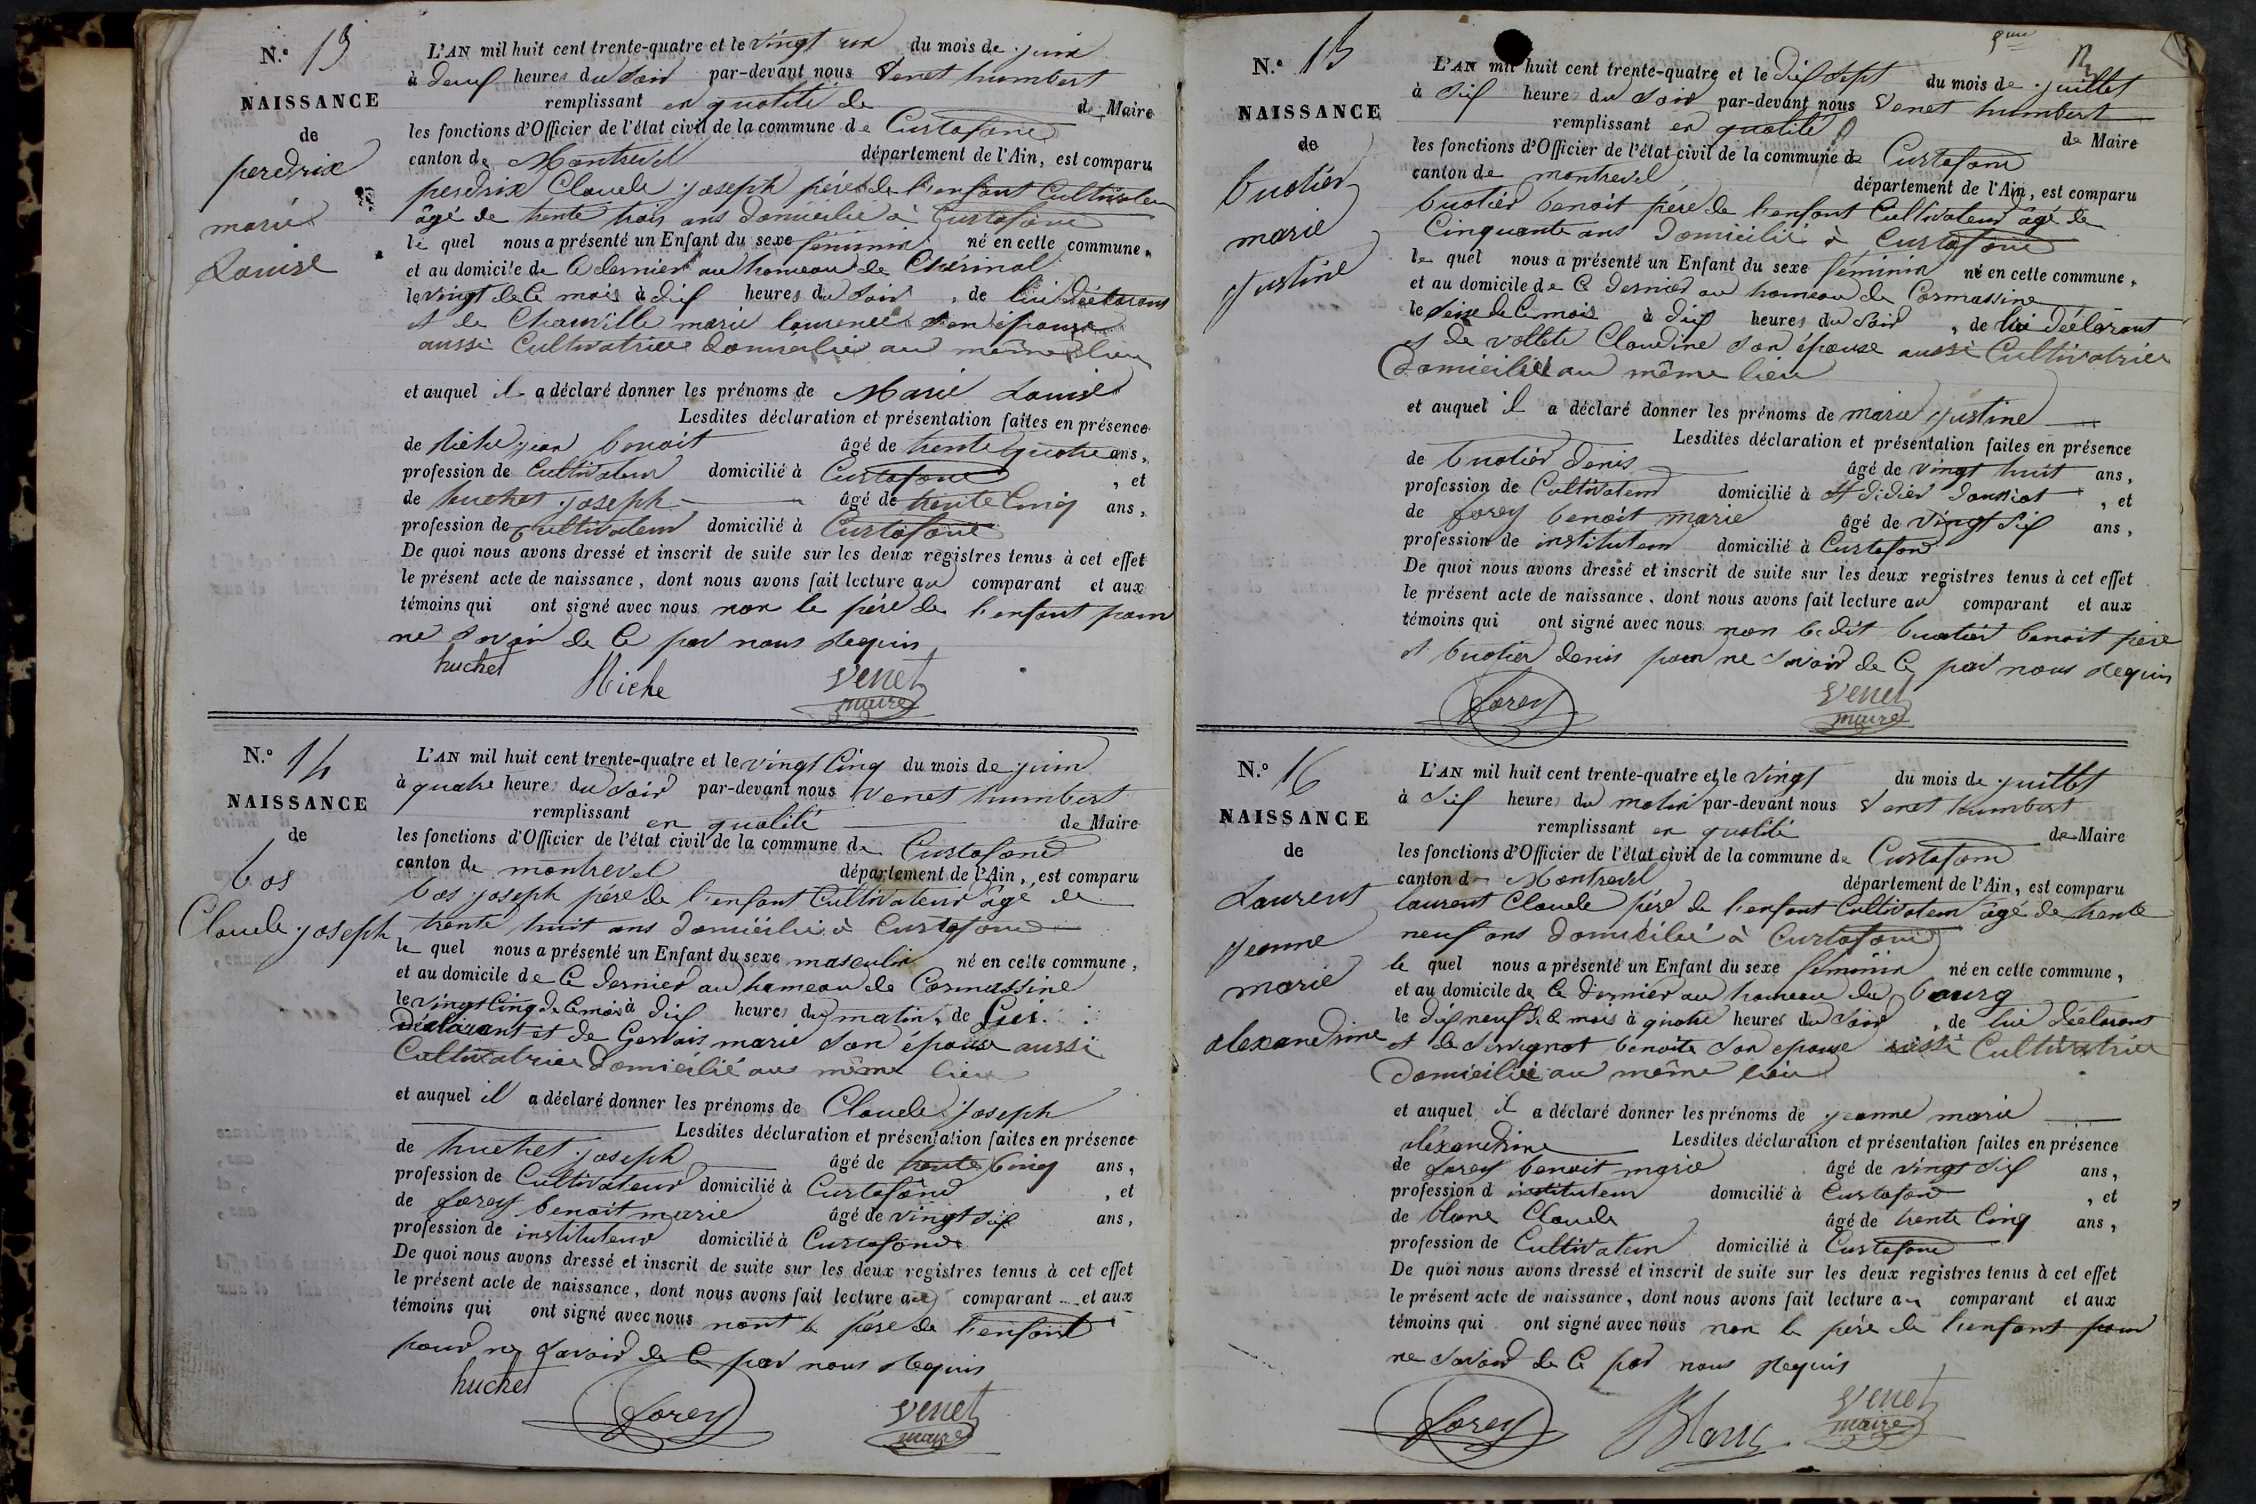 N.° 13
NAISSANCE
de
perdrix
marie
Louise
L'AN mil huit cent trente-quatre et le vingt un du mois de juin
à deux heures du soir par-devant nous Venet humbert
remplissant en qualité de de Maire
les fonctions d'Officier de l'état civil de la commune de Curtafond
canton de Montrevel département de l'Ain, est comparu
perdrix Claude joseph père de l'enfant Cultivateur
âgé de trente trois ans domicilié à Curtafond
le quel nous a présenté un Enfant du sexe féminin né en cette commune,
et au domicile de Ce dernier au hameau de Chérinal
le vingt de Ce mois à dix heures du soir , de lui déclarant
et de Chanville marie laurence son épouse
aussi Cultivatrice domicilié au même lieu
et auquel il a déclaré donner les prénoms de Marie Louise
Lesdites déclaration et présentation faites en présence
de Niche jean benoit âgé de trente quatre ans,
profession de Cultivateur domicilié à Curtafond , et
de huchet joseph âgé de trente Cinq ans,
profession de Cultivateur domicilié à Curtafond
De quoi nous avons dressé et inscrit de suite sur les deux registres tenus à cet effet
le présent acte de naissance, dont nous avons fait lecture au comparant et aux
témoins qui ont signé avec nous non le père de l'enfant pour
ne savoir de Ce par nous Requis
huchet Niche Venet
maire
N.° 14
NAISSANCE
de
bos
Claude joseph
L'AN mil huit cent trente-quatre et le vingt Cinq du mois de juin
à quatre heure du soir par-devant nous Venet humbert
remplissant en qualité de Maire
les fonctions d'Officier de l'état civil de la commune de Curtafond
canton de montrevel département de l'Ain, est comparu
bos joseph père de l'enfant Cultivateur âgé de
trente huit ans domicilié à Curtafond
le quel nous a présenté un Enfant du sexe masculin né en cette commune,
et au domicile de Ce dernier au hameau de Cormassine
le vingt Cinq de Ce mois à dix heures du matin, de Lui
déclarant et de Gervais marie son épouse aussi
Cultivatrice domicilié au même lieu
et auquel il a déclaré donner les prénoms de Claude joseph
Lesdites déclaration et présentation faites en présence
de huchet joseph âgé de trente Cinq ans,
profession de Cultivateur domicilié à Curtafond , et
de forey benoit marie âgé de vingt six ans,
profession de instituteur domicilié à Curtafond
De quoi nous avons dressé et inscrit de suite sur les deux registres tenus à cet effet
le présent acte de naissance, dont nous avons fait lecture au comparant et aux
témoins qui ont signé avec nous nont le père de l'enfant
pour ne savoir de Ce par nous Requis
huchet forey Venet
maire
N.° 15
NAISSANCE
de
buatier
marie
justine
L'AN mil huit cent trente-quatre et le dix sept du mois de juillet
à six heure du soir par-devant nous Venet humbert
remplissant en qualité de Maire
les fonctions d'Officier de l'état civil de la commune de Curtafond
canton de montrevel département de l'Ain, est comparu
buatier benoit père de l'enfant Cultivateur âgé de
Cinquante ans domicilié à Curtafond
le quel nous a présenté un Enfant du sexe féminin né en cette commune,
et au domicile de Ce dernier au hameau de Cormassine
le seize de Ce mois à dix heures du soir , de lui déclarant
et de vollete Claudine son épouse aussi Cultivatrice
domicilié au même lieu
et auquel il a déclaré donner les prénoms de marie justine
Lesdites déclaration et présentation faites en présence
de buatier denis âgé de vingt huit ans,
profession de Cultivateur domicilié à St didier daussiat , et
de forey benoit marie âgé de vingt six ans,
profession de instituteur domicilié à Curtafond
De quoi nous avons dressé et inscrit de suite sur les deux registres tenus à cet effet
le présent acte de naissance, dont nous avons fait lecture au comparant et aux
témoins qui ont signé avec nous non le dit buatier benoit père
et buatier denis pour ne savoir de Ce par nous Requis
forey Venet
maire
N.° 16
NAISSANCE
de
Laurent
jeanne
marie
alexandrine
L'AN mil huit cent trente-quatre et le vingt du mois de juillet
à six heure du matin par-devant nous Venet humbert
remplissant en qualité de Maire
les fonctions d'Officier de l'état civil de la commune de Curtafond
canton de Montrevel département de l'Ain, est comparu
laurent Claude père de l'enfant Cultivateur âgé de trente
neuf ans domicilié à Curtafond
le quel nous a présenté un Enfant du sexe féminin né en cette commune,
et au domicile de Ce dernier au hameau du bourg
le dix neuf de Ce mois à quatre heures du soir , de lui déclarant
et de benoite son épouse aussi Cultivatrice
domicilié au même lieu
et auquel il a déclaré donner les prénoms de jeanne marie
aléxandrine Lesdites déclaration et présentation faites en présence
de forey benoit marie âgé de vingt six ans,
profession d instituteur domicilié à Curtafond , et
de blanc Claude âgé de trente Cinq ans,
profession de Cultivateur domicilié à Curtafond
De quoi nous avons dressé et inscrit de suite sur les deux registres tenus à cet effet
le présent acte de naissance, dont nous avons fait lecture au comparant et aux
témoins qui ont signé avec nous non le père de l'enfant pour
ne savoir de Ce par nous Requis
forey Blanc Venet
maire